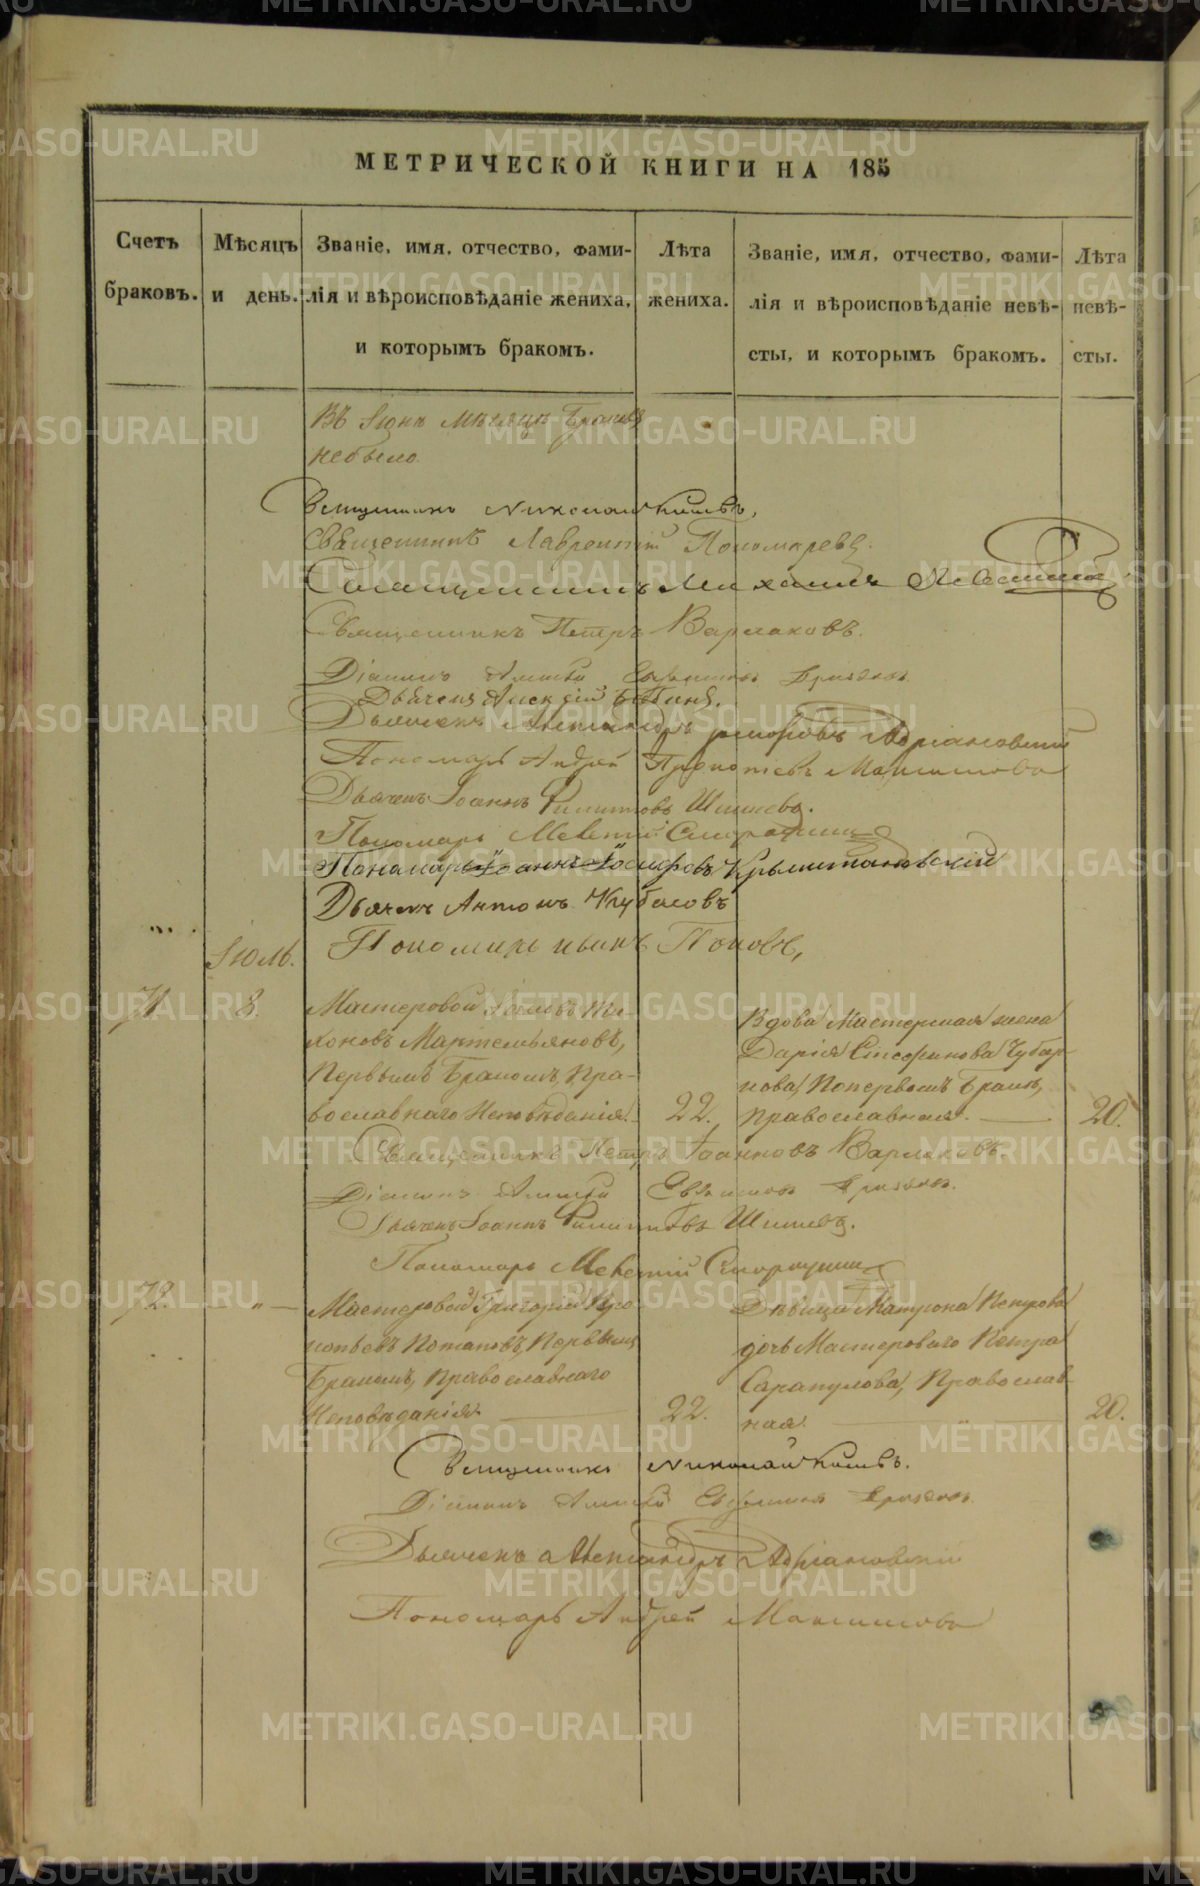 МЕТРИЧЕСКОЙ КНИГИ НА 185
Счетъ браковъ.
Мѣсяцъ и день.
Званіе, имя, отчество, фами-
лія и вѣроисповѣданіе жениха,
и которымъ бракомъ.
Лѣта
жениха.
Званіе, имя, отчество, фами-
лія и вѣроисповѣданіе невѣ-
сты, и которымъ бракомъ.
Лѣта
невѣ-
сты.
Въ Іюнѣ мѣсяцѣ браковъ
небыло.
Священникъ Николай
Священникъ Лаврентій Пономаревъ.
Священникъ Михаилъ
Священникъ Петръ Варлаковъ.
Діаконъ
Дьячекъ Алексій
Дьячекъ Александръ Адріановскій
Пономарь Андрей Прокопіевъ Максимовъ
Дьячекъ Іоаннъ Филиповъ Шишевъ.
Пономарь
Пономарь Іоаннъ Іосифовъ
Дьячекъ Антонъ Кубасовъ
Пономарь Иванъ Поповъ,
Іюль.
71
8.
Мастеровой Ти-
хоновъ Мартемьяновъ,
Первымъ Бракомъ, Пра-
вославнаго Исповѣданія.
22.
Вдова Мастерская жена
Дарія Стефанова Чубар-
кова, Попервомъ Бракѣ,
Православная.
20.
Священникъ Петръ Іоанновъ Варлаковъ.
Діаконъ
Дьячекъ Іоаннъ Филиповъ Шишевъ.
Пономарь
72.
— „ —
Мастеровой Григорій Про-
копьевъ Потаповъ, Первымъ
Бракомъ, Православнаго
Исповѣданія.
22.
Дѣвица Матрона Петрова
дочь Мастероваго Петра
Сарапулова, Православ-
ная.
20.
Священникъ Николай
Діаконъ
Дьячекъ Александръ Адріановскій
Пономарь Андрей Максимовъ
METRIKI.GASO-URAL.RU